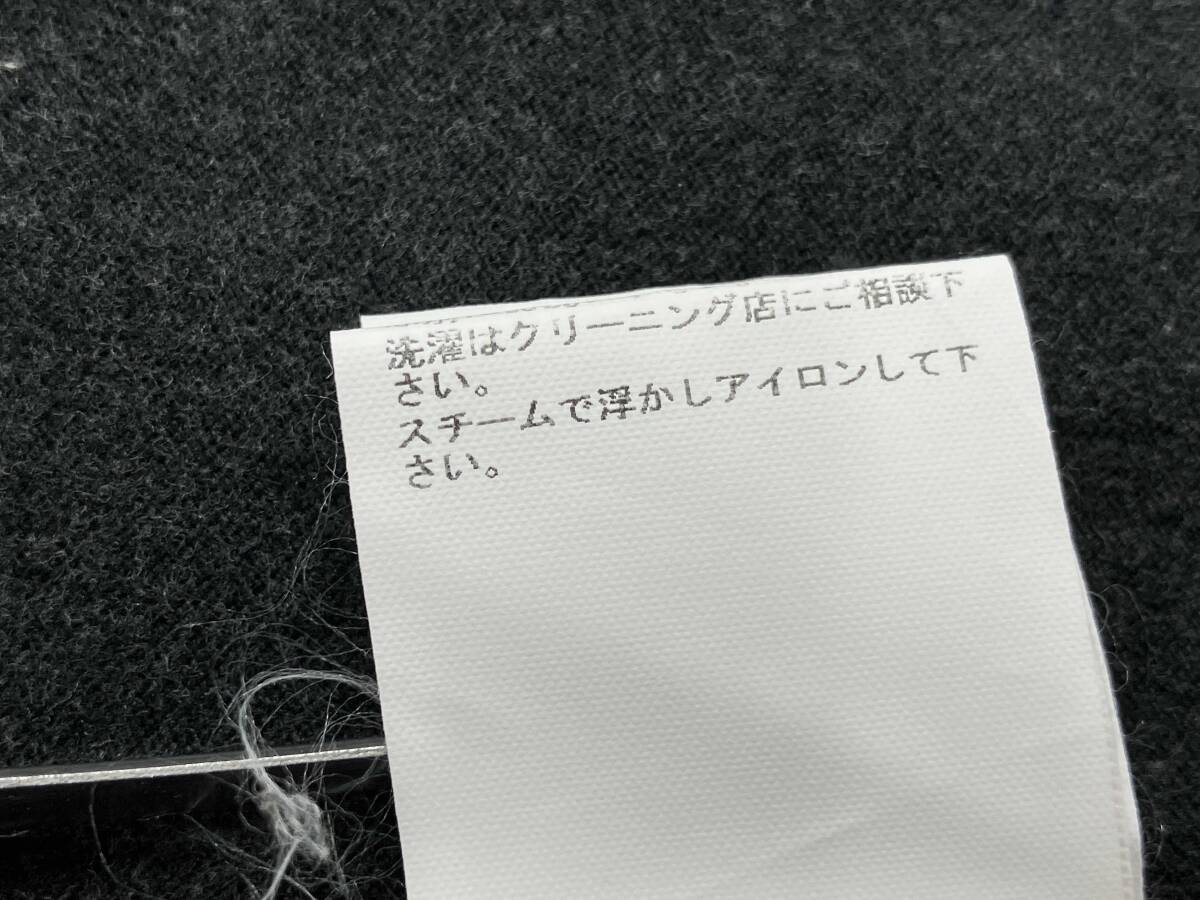 洗濯はクリーニング店にご相談下
さい。
スチームで浮かしアイロンして下
さい。